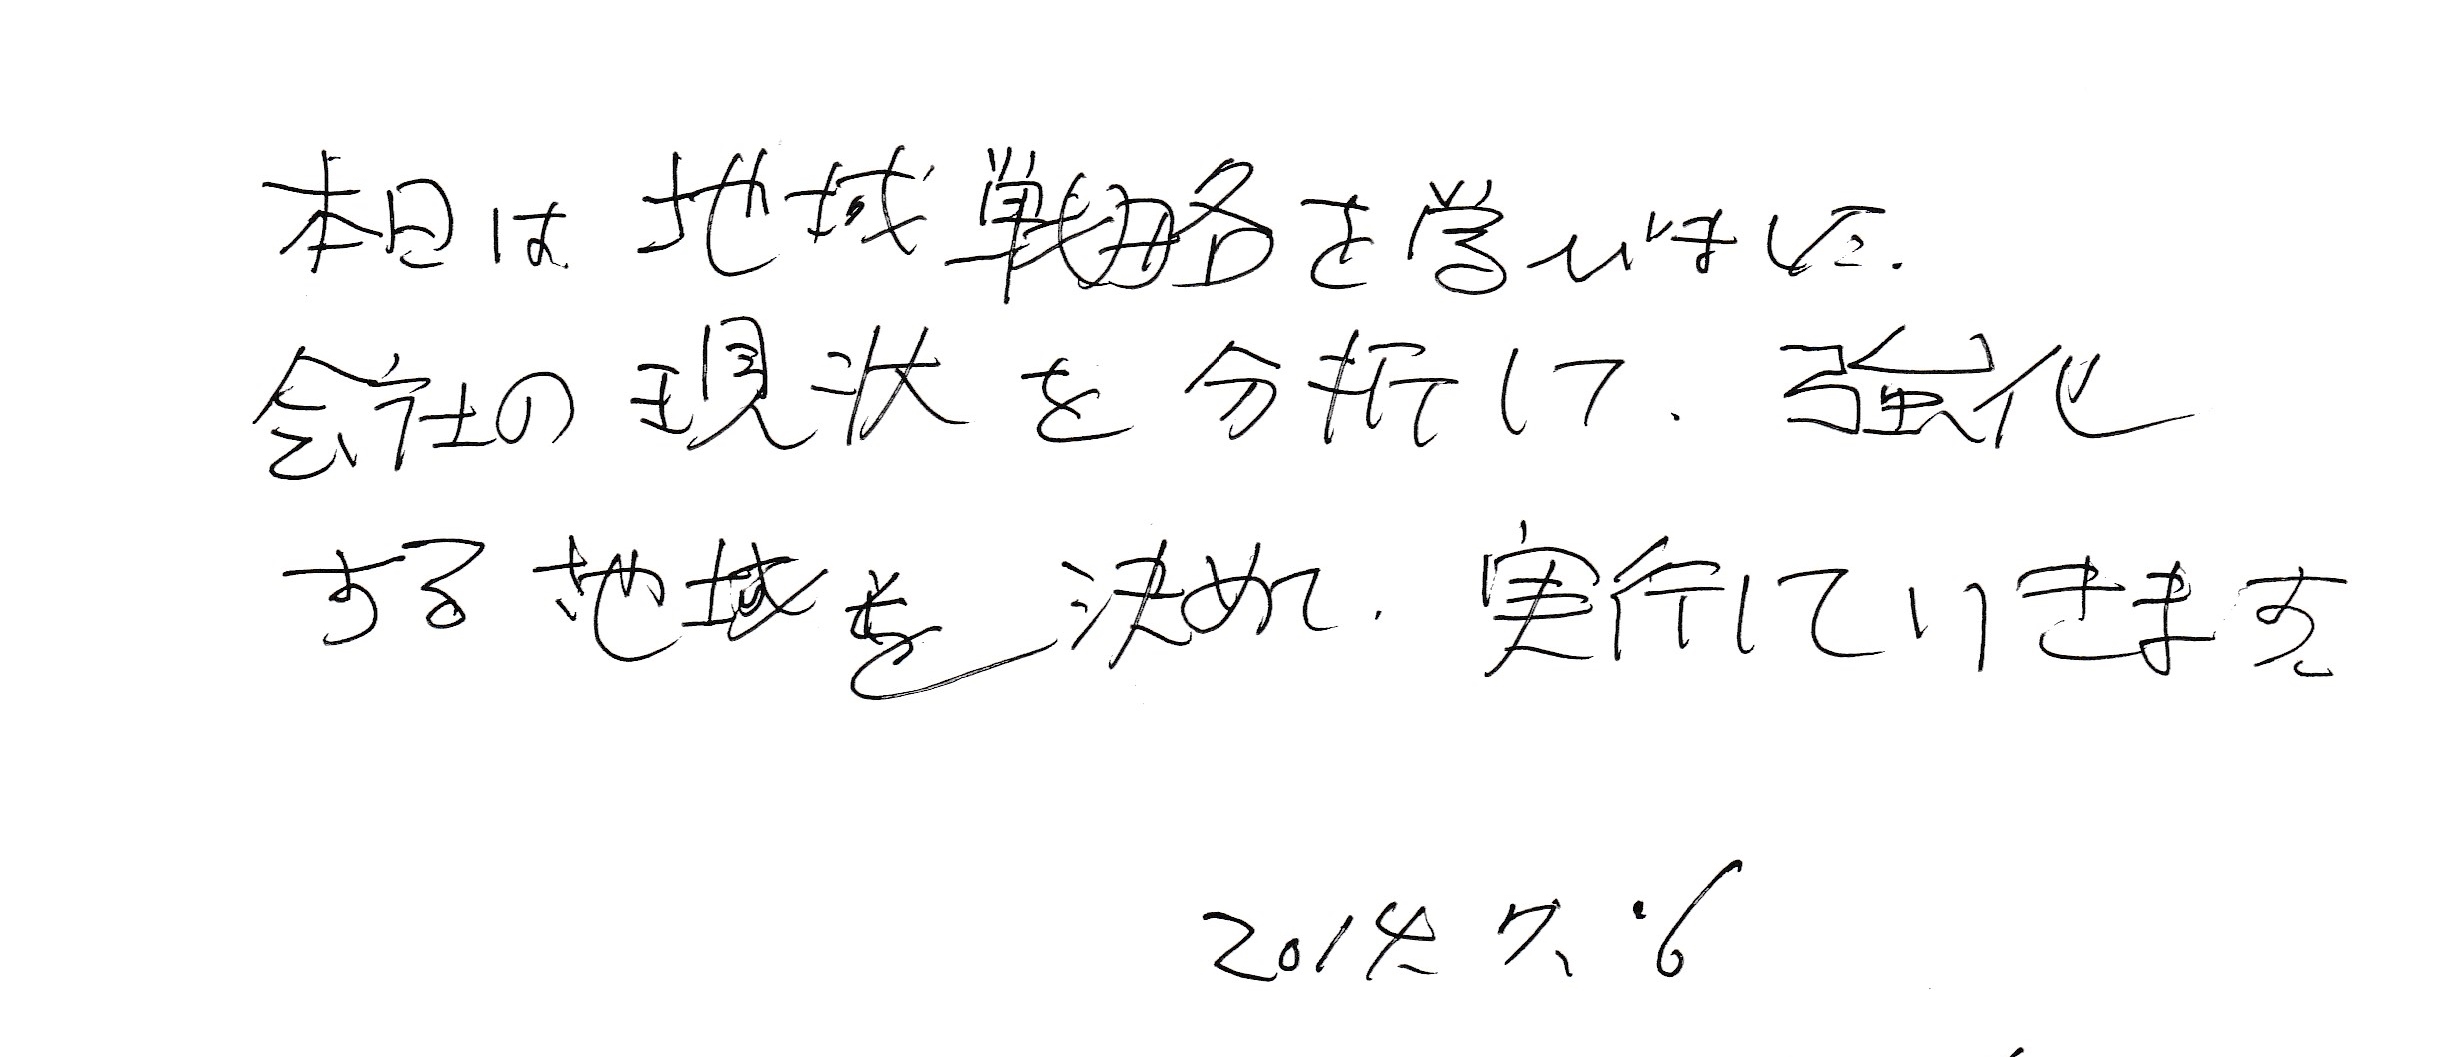 本日は地域戦略を学びました.
会社の現状を分析して.強化
する地域を決めて.実行していきます
2014. 7. 6